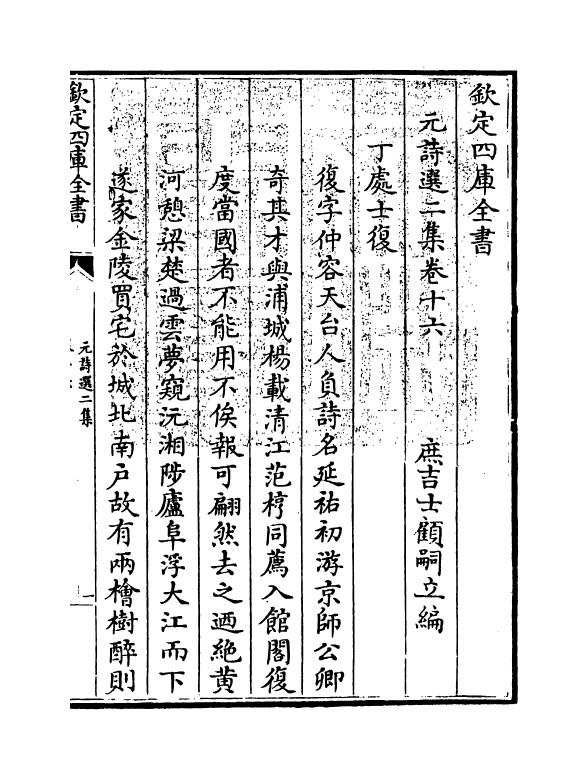 欽定四庫全書
元詩選二集卷十六 庶吉士顧嗣立編
丁處士復
復字仲容天台人負詩名延祐初游京師公卿
奇其才與浦城楊載清江范梈同薦入館閣復
度當國者不能用不俟報可翩然去之迺絶黄
河憩梁楚過雲夢窺沅湘陟廬阜浮大江而下
遂家金陵買宅於城北南戶故有兩檜樹醉則
欽定四庫全書
元詩選二集
一